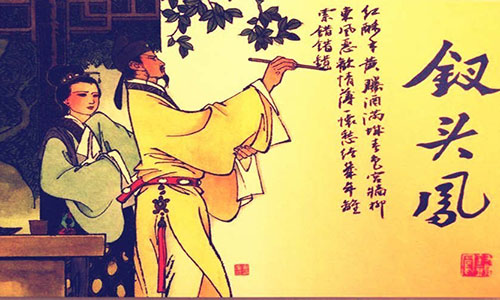 钗头凤
红酥手黄縢酒满城春色宫墙柳
東風恶歡情薄一懷愁绪幾年離
索错错错